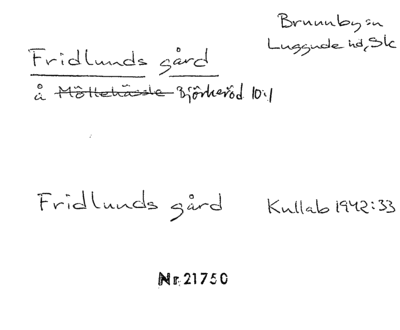 Brunnby sn
Luggude hd, Sk
Fridlunds gård
å Möllehässle Björkeröd 10:1
Fridlunds gård Kullab 1942:33
Nr. 21750